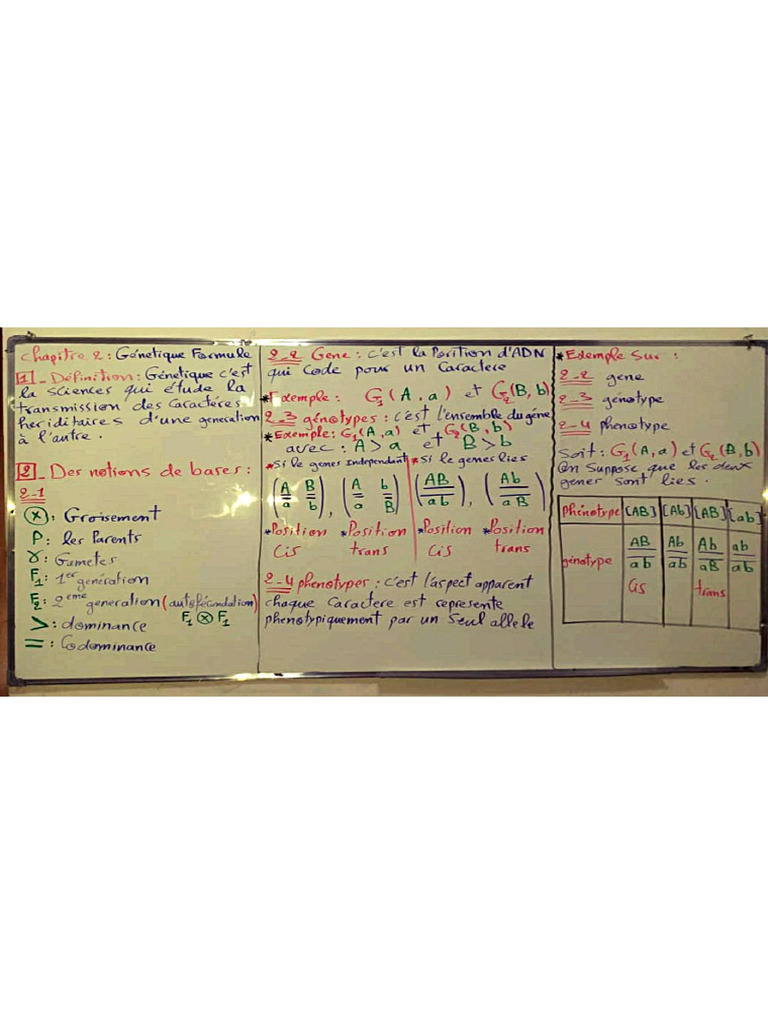 Chapitre 2 : Génetique Formule
1 - Définition : Génetique c'est
la sciences qui étude la
transmission des Caractéres
heriditaires d'une generation
à l'autre.
2 - Des notions de bases :
2-1
ⓧ : Groisement
P : les Parents
γ : Gametes
F1 : 1er genération
F2 : 2eme generation (autofécondation)
F1 ⓧ F1
> : dominance
= : Codominance
2-2 Gene : c'est la Position d'ADN
qui Code pour un Caractere
* Exemple : G1 (A, a) et G2 (B, b)
2-3 génotypes : c'est l'ensemble du géne
* Exemple : G1 (A, a) et G2 (B, b)
avec : A > a et B > b
* Si le genes Independant * Si le genes lies
(A/a B/b), (A/a b/B) (AB/ab), (Ab/aB)
* Position * Position * Position * Position
Cis trans Cis trans
2-4 phenotypes : c'est l'aspect apparent
chaque Caractere est represente
phenotypiquement par un Seul allele
* Exemple Sur :
2-2 gene
2-3 génotype
2-4 phenotype
Soit : G1 (A, a) et G2 (B, b)
On Suppose que les deux
gener sont lies.
Phénotype [AB] [Ab] [AB] [ab]
génotype AB/ab Ab/ab Ab/aB ab/ab
Cis trans